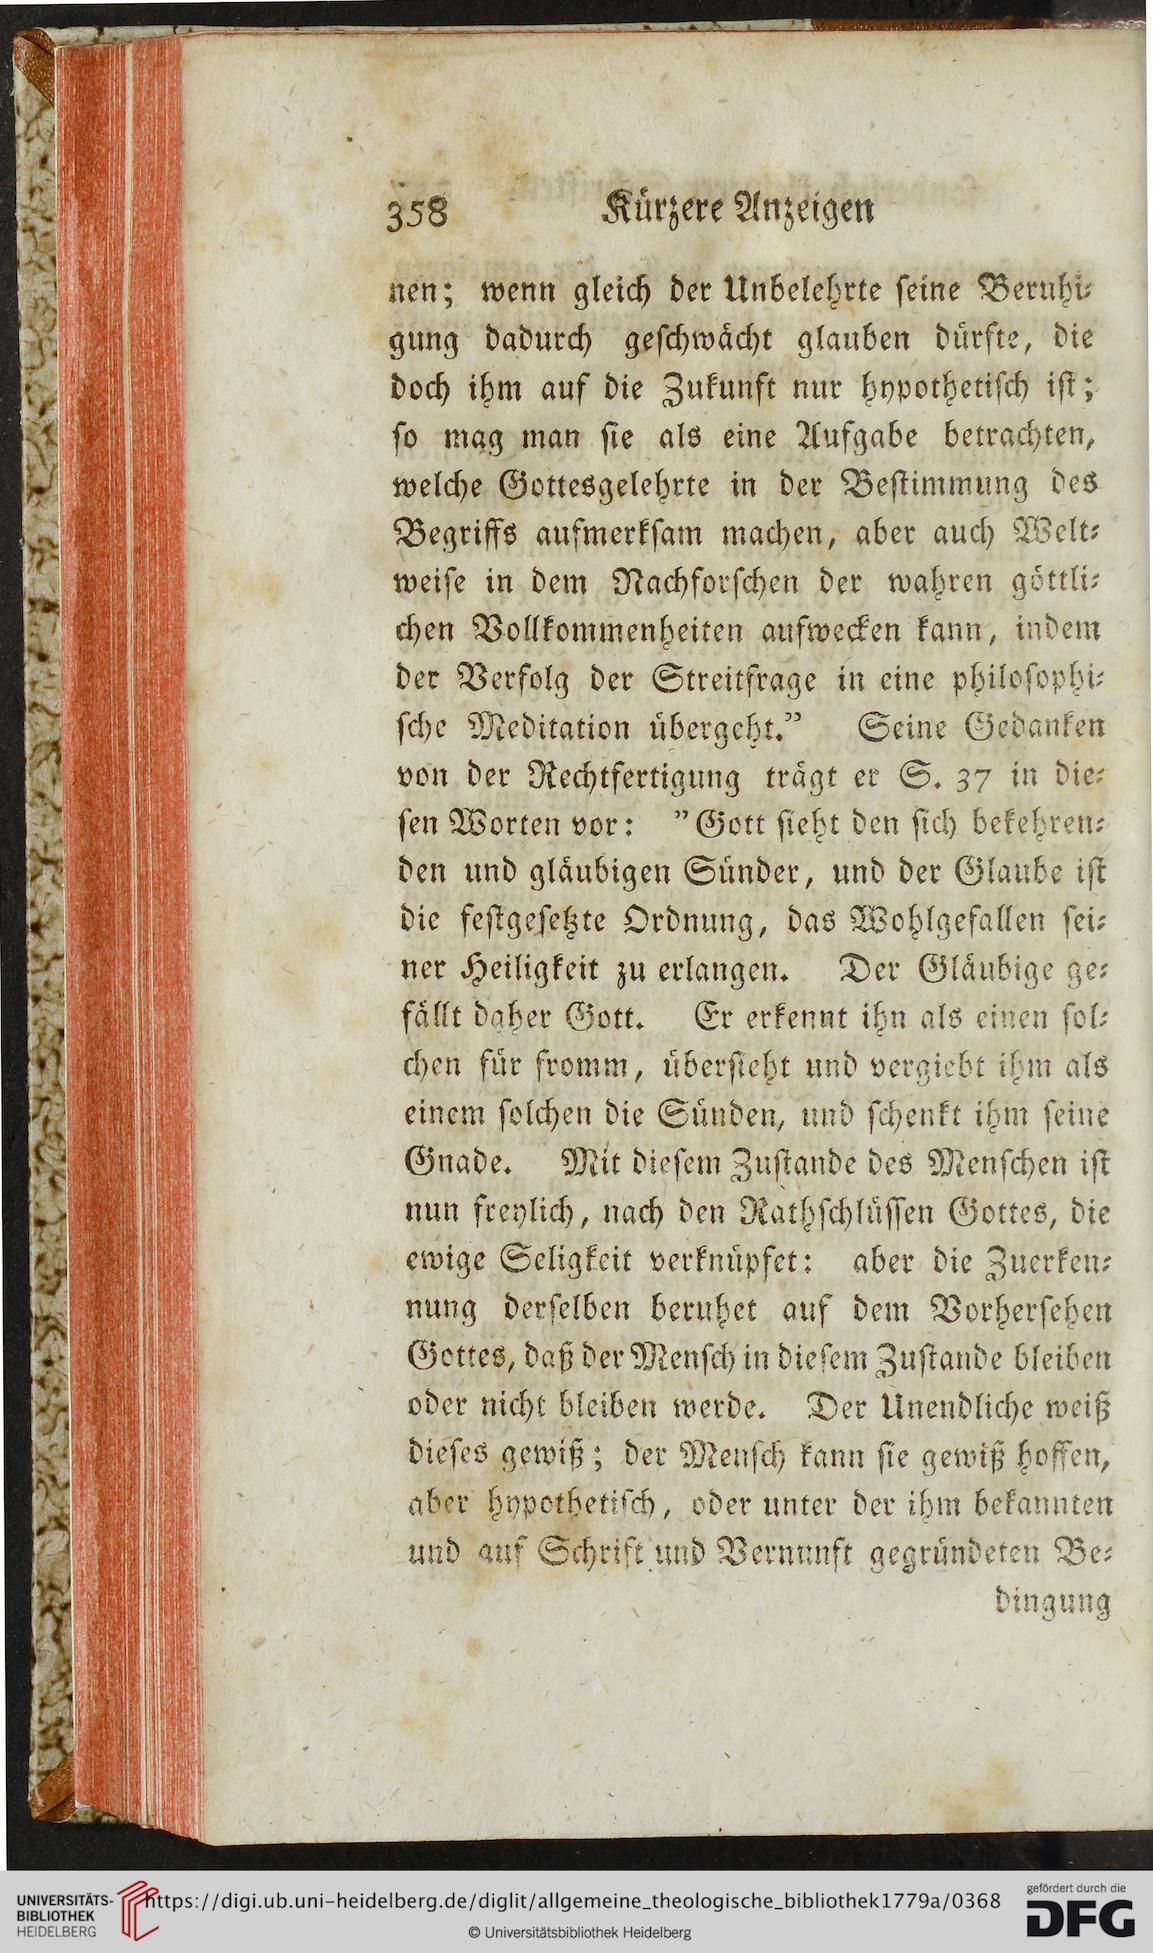 358 Kürzere Anzeigen
nen; wenn gleich der Unbelehrte ſeine Beruhi⸗
gung dadurch geſchwächt glauben dürfte, die
doch ihm auf die Zukunft nur hypothetiſch iſt;
ſo mag man ſie als eine Aufgabe betrachten,
welche Gottesgelehrte in der Beſtimmung des
Begriffs aufmerkſam machen, aber auch Welt⸗
weiſe in dem Nachforſchen der wahren göttli⸗
chen Vollkommenheiten aufwecken kann, indem
der Verfolg der Streitfrage in eine philoſophi⸗
ſche Meditation übergeht.” Seine Gedanken
von der Rechtfertigung trägt er S. 37 in die⸗
ſen Worten vor: ”Gott ſieht den ſich bekehren⸗
den und gläubigen Sünder, und der Glaube iſt
die feſtgeſetzte Ordnung, das Wohlgefallen ſei⸗
ner Heiligkeit zu erlangen. Der Gläubige ge⸗
fällt daher Gott. Er erkennt ihn als einen ſol⸗
chen für fromm, überſieht und vergiebt ihm als
einem ſolchen die Sünden, und ſchenkt ihm ſeine
Gnade. Mit dieſem Zuſtande des Menſchen iſt
nun freylich, nach den Rathſchlüſſen Gottes, die
ewige Seligkeit verknüpfet: aber die Zuerken⸗
nung derſelben beruhet auf dem Vorherſehen
Gottes, daß der Menſch in dieſem Zuſtande bleiben
oder nicht bleiben werde. Der Unendliche weiß
dieſes gewiß; der Menſch kann ſie gewiß hoffen,
aber hypothetiſch, oder unter der ihm bekannten
und auf Schrift und Vernunft gegründeten Be⸗
dingung
UNIVERSITÄTS-
BIBLIOTHEK
HEIDELBERG
https://digi.ub.uni-heidelberg.de/diglit/allgemeine_theologische_bibliothek1779a/0368
© Universitätsbibliothek Heidelberg
gefördert durch die
DFG